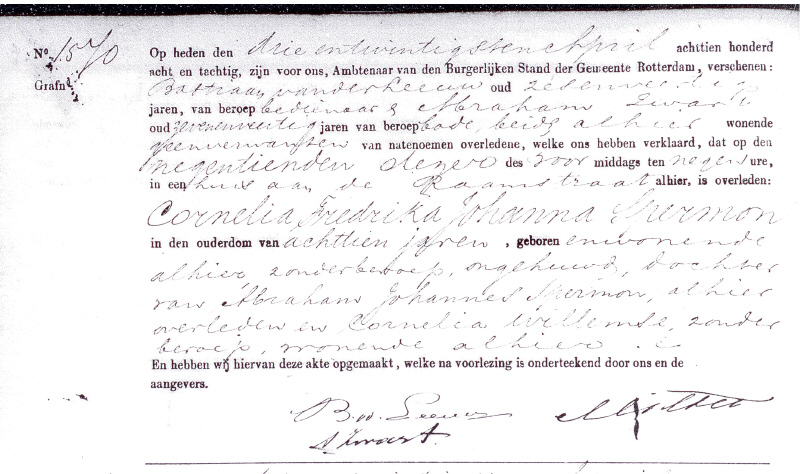 No. 1570
Op heden den drie en twintigsten April achttien honderd
acht en tachtig, zijn voor ons, Ambtenaar van den Burgerlijken Stand der Gemeente Rotterdam, verschenen:
Grafn
Bastiaan van der Leeuw oud zesenveertig
jaren, van beroep bedienaar & Abraham Zwart
oud zevenenveertig jaren van beroep bode, beide alhier wonende
geenverwanten van natenoemen overledene, welke ons hebben verklaard, dat op den
negentienden dezer des voor middags ten negen ure,
in een huis aan de Raamstraat alhier, is overleden:
Cornelia Fredrika Johanna Spermon
in den ouderdom van achttien jaren, geboren en wonende
alhier zonder beroep, ongehuwd, dochter
van Abraham Johannes Spermon, alhier
overleden en Cornelia Willemse, zonder
beroep, wonende alhier.
En hebben wij hiervan deze akte opgemaakt, welke na voorlezing is onderteekend door ons en de
aangevers.
B. v. d. Leeuw
A Zwart